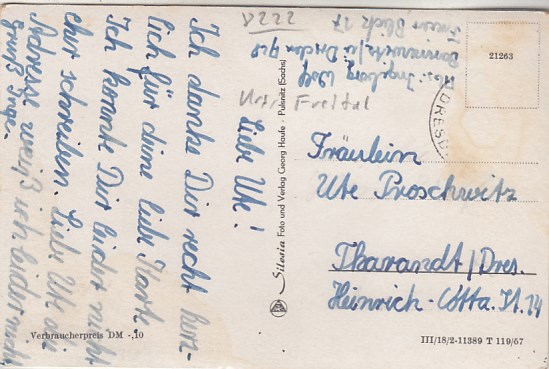 Liebe Ute!
Ich danke Dir recht herz-
lich für deine liebe Karte.
Ich konnte Dir leider nicht
eher schreiben. Liebe Ute die
Adresse weiß ich leider nicht
Abs. Ingeborg Wolf
Bannewitz/ü Dresden
Block 17
Freital
Fräulein
Ute Proschwitz
Tharandt/Dres.
Heinrich-Cotta. St. 14
21263
DRESD
Silesia Foto und Verlag Georg Haufe · Pulsnitz (Sachs)
Verbraucherpreis DM -,10
III/18/2-11389 T 119/67